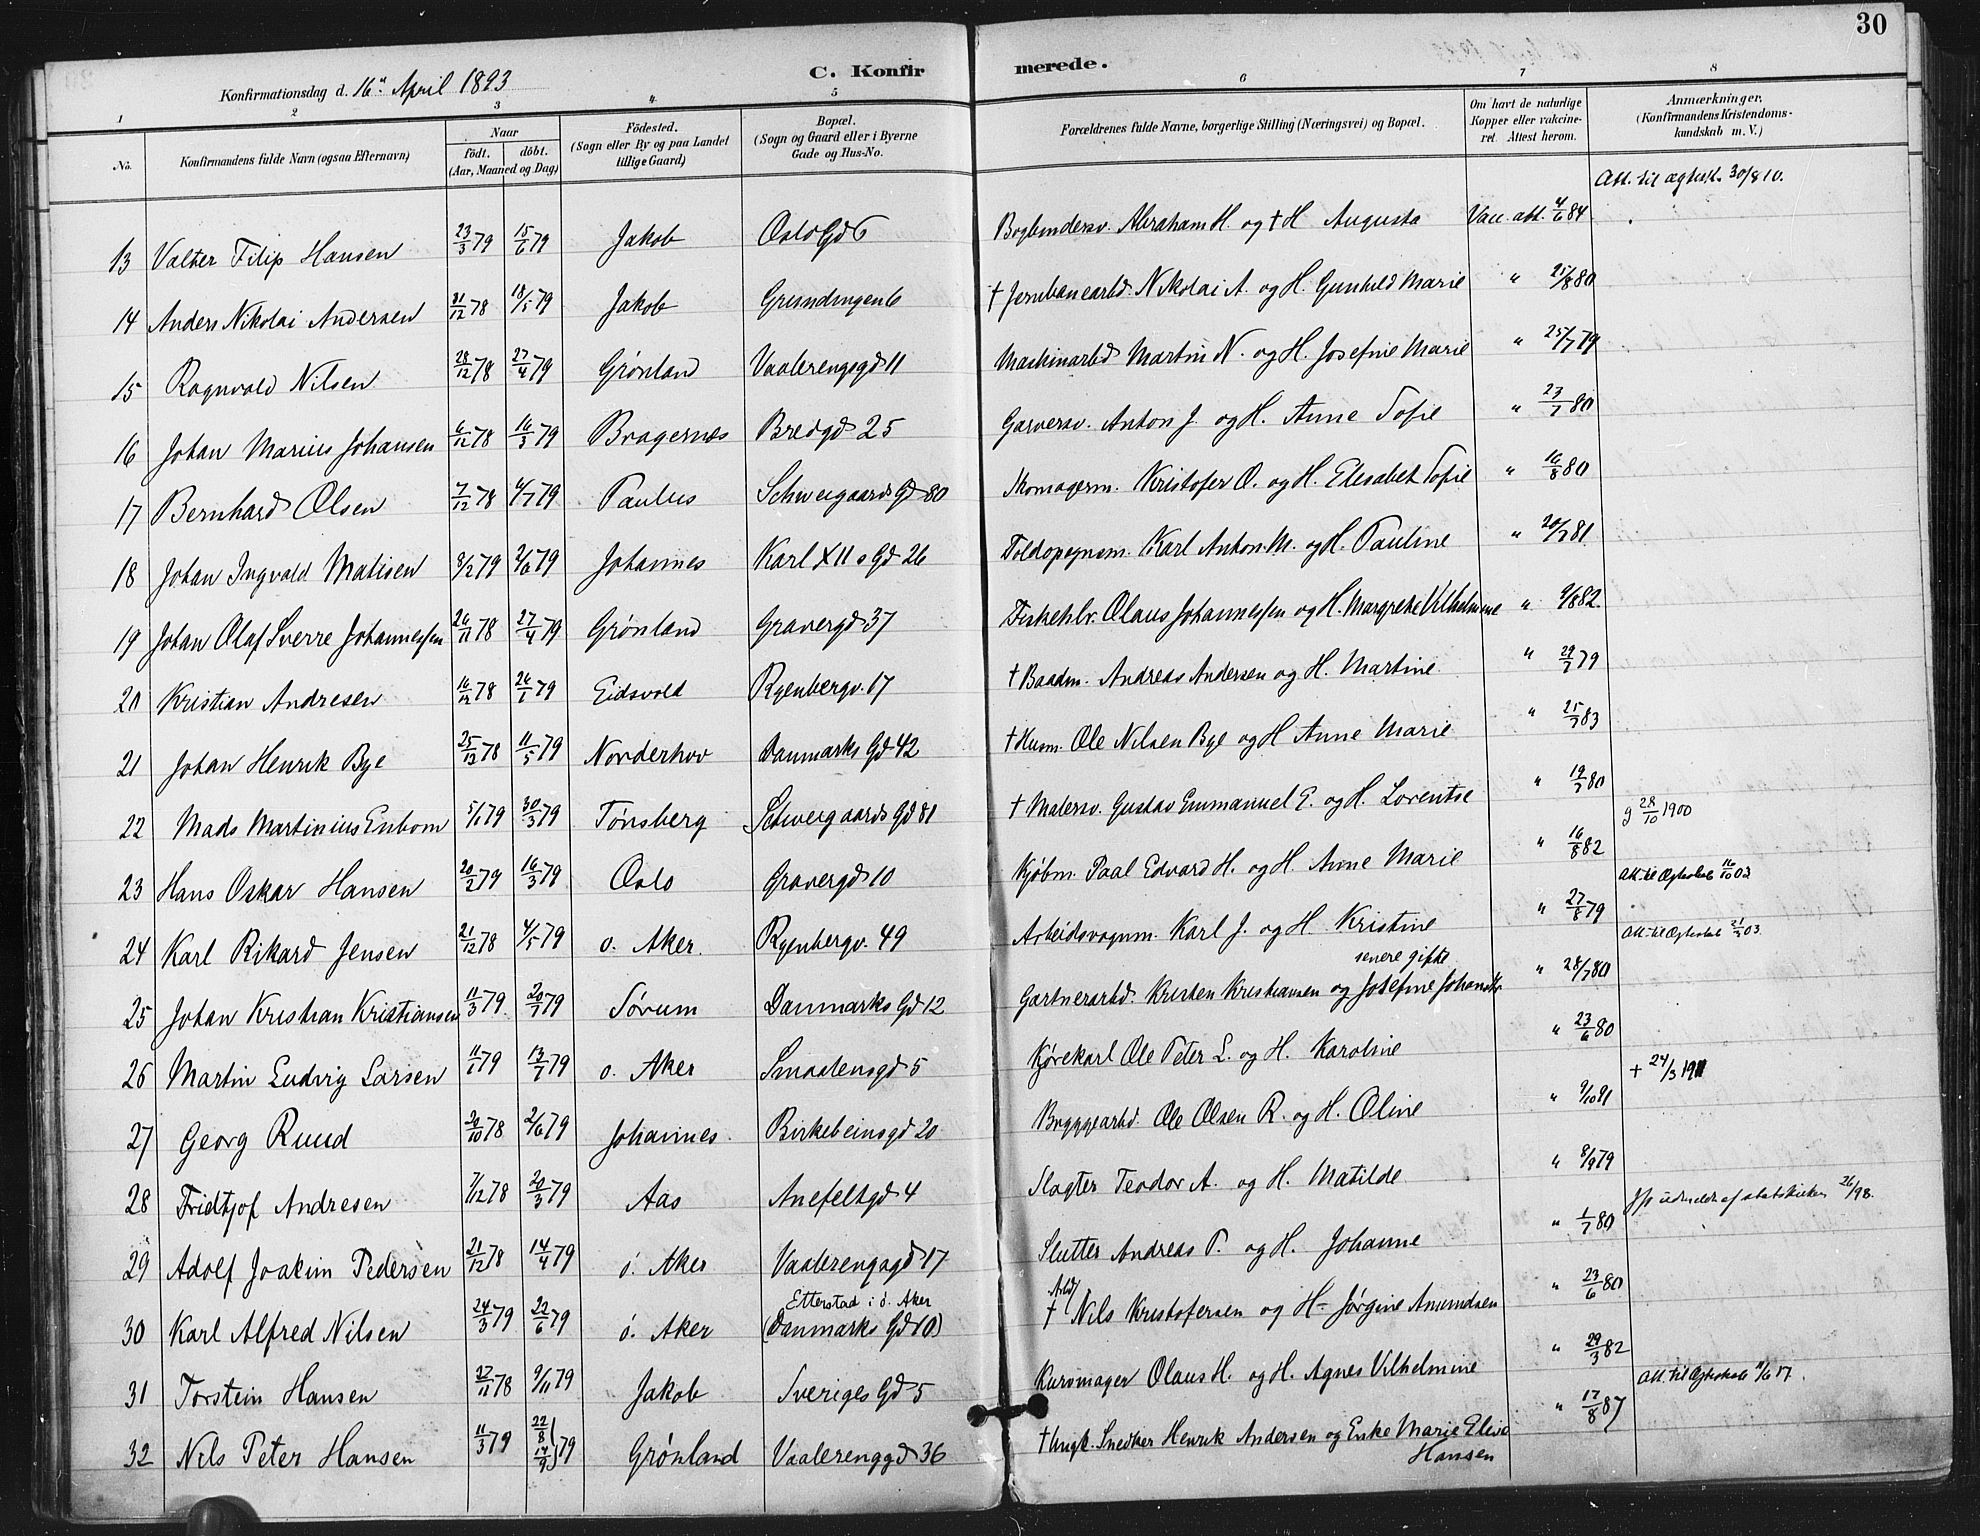 30
Konfirmationsdag d. 16de April 1893
C. Konfirmerede.
1 2 3 4 5 6 7 8
No. Konfirmandens fulde Navn (ogsaa Efternavn) Naar födt. döbt. (Aar, Maaned og Dag) Födested. (Sogn eller By og paa Landet tillige Gaard) Bopæl. (Sogn og Gaard eller i Byerne Gade og Hus-No. Forældrenes fulde Navne, borgerlige Stilling (Næringsvei) og Bopæl. Om havt de naturlige Kopper eller vakcineret. Attest herom. Anmærkninger. (Konfirmandens Kristendomskundskab m. V.)
Att. til ægtesk. 30/8 10.
13 Valter Filip Hansen 23/3 79 15/6 79 Jakob Oslo Gd 6 Bogbindersv. Abraham H. og † H Augusta Vacc. att. 4/6 84
14 Anders Nikolai Andersen 31/12 78 18/5 79 Jakob Grundingen 6 † Jernbanearbd. Nikolai A. og H. Gunhild Marie " 21/8 80
15 Ragnvald Nilsen 28/12 78 27/4 79 Grønland Vaalerengsgd 11 Maskinarbd Martin N. og H. Josefine Marie " 25/7 79
16 Johan Marius Johansen 6/12 78 16/3 79 Bragernes Bredgd 25 Garversv. Anton J. og H. Anne Sofie " 23/7 80
17 Bernhard Olsen 7/12 78 6/7 79 Paulus Schweigaards Gd 80 Skomagerm. Kristofer O. og H. Elisabet Sofie " 16/8 80
18 Johan Ingvald Matisen 8/2 79 2/6 79 Johannes Karl XII s Gd 26 Toldopsynsm. Karl Anton M. og H. Pauline " 20/7 81
19 Johan Olaf Sverre Johannessen 26/11 78 27/4 79 Grønland Gravergd 37 Fiskehlr. Olaus Johannessen og H. Margrete Vilhelmine " 9/8 82.
20 Kristian Andresen 16/12 78 26/1 79 Eidsvold Ryenbergv. 17 † Baadm. Andreas Andersen og H. Martine " 29/7 79
21 Johan Henrik Bye 25/12 78 11/5 79 Norderhov Danmarks Gd 42 † Husm. Ole Nilsen Bye og H Anne Marie " 21/7 83
22 Mads Martinius Enbom 5/1 79 30/3 79 Tønsberg Schweigaards Gd 81 † Malersv. Gustav Emmanuel E. og H. Lorentse " 19/7 80
g 28/10 1900
23 Hans Oskar Hansen 20/2 79 16/3 79 Oslo Gravergd 10 Kjøbm. Paal Edvard H. og H. Anne Marie " 16/8 82
Att. til Ægteskab 16/10 03
24 Karl Rikard Jensen 21/12 78 4/5 79 ø. Aker. Ryenbergv. 49 Arbeidsvognm. Karl J. og H Kristine " 27/8 79
Att. til Ægteskab 21/2 03.
senere gifte
25 Johan Kristian Kristiansen 11/3 79. 20/7 79 Sørum Danmarks Gd 12 Gartnerarbd. Kristen Kristiansen og Josefine Johansdtr " 28/7 80
26 Martin Ludvig Larsen 11/1 79 13/7 79 ø. Aker Smaalensgd 5 Kjørekarl Ole Peter L. og H. Karoline " 23/6 80
† 24/3 1911
27 Georg Ruud 20/10 78 2/6 79 Johannes. Birkebeinsgd 20 Bryggearbd. Ole Olsen R. og H. Oline " 9/10 91
28 Fridtjof Andresen 7/12 78 20/3 79 Aas Anefeltgd 4 Slagter Teodor A. og H. Matilde " 8/9 79
udmeldt af statskirken 26/1 98.
29 Adolf Joakim Pedersen 21/12 78 14/4 79 ø. Aker Vaalerengsgd 17 Slutter Andreas P. og H. Johanne " 1/7 80
Etterstad i ø. Aker
Arbd
30 Karl Alfred Nilsen 24/3 79 22/6 79 ø. Aker (Danmarks Gd 10) † Nils Kristofersen og H- Jørgine Amundsen " 23/6 80
31 Torstein Hansen 22/11 78 9/11 79 Jakob Sveriges Gd 5 Kurvmager Olaus H. og H. Agnes Vilhelmine " 29/3 82
Att. til Ægteskab 11/6 17.
32 Nils Peter Hansen 11/3 79 22/8 14/9 79 Grønland Vaalerenggd 36 † Ungk. Snedker Henrik Andersen og Enke Marie Elise Hansen " 17/8 87